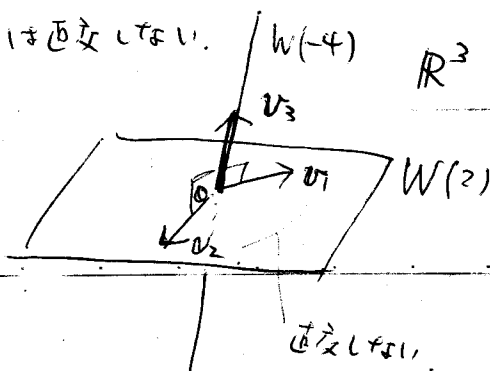 は直交しない.
W(-4)
ℝ³
v₃
v₁
W(2)
v₂
直交しない.